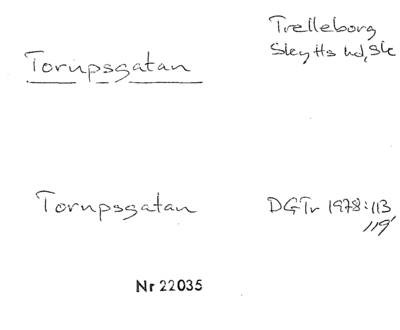 Trelleborg
Skytts hd, Sk
Torupsgatan
Torupsgatan
DGTr 1978:113
119
Nr 22035